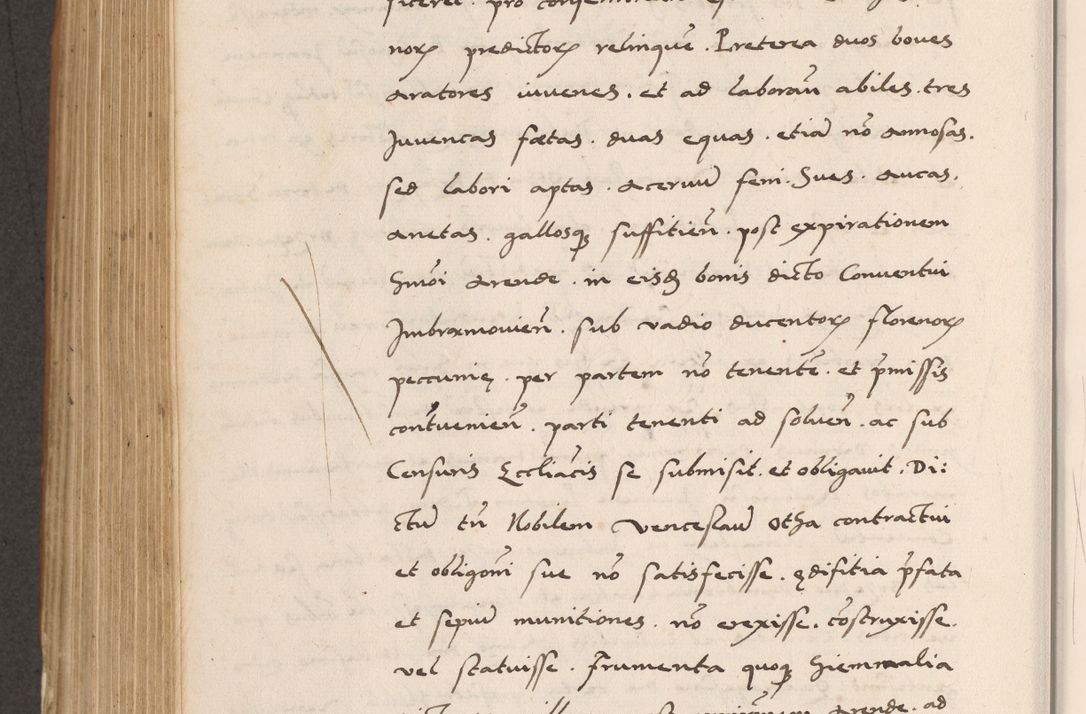 norꝝ predictorꝝ relinque̅. Preterea duos boues
aratores iuuenes. et ad laboran̅ abiles. tres
Juuencas fœtas. duas equas. etia̅ no̅ annosas.
sed labori aptas. aceruu̅ feni. Sues. aucas.
anetas. gallosqꝫ suffitien̅. post expirationem
hmo̅i arende. in eisdꝫ bonis dicto Conuentui
Imbramouien̅. sub vadio ducentorꝝ florenorꝝ
peccunię. per partem no̅ tenente̅. et p̅missis
contuenien̅. parti tenenti ad soluen̅. ac sub
Censuris Eccliacis se submisit. et obligauit. Di:
ctu̅ tn̅ Nobilem Venceslau̅ Otha contractui
et obligoni sue no̅ satisfecisse. ędifitia p̅fata
et sepiu̅ munitiones. no̅ erexisse. co̅struxisse.
vel statuisse. frumenta quoqꝫ hiemmalia
arende. ad